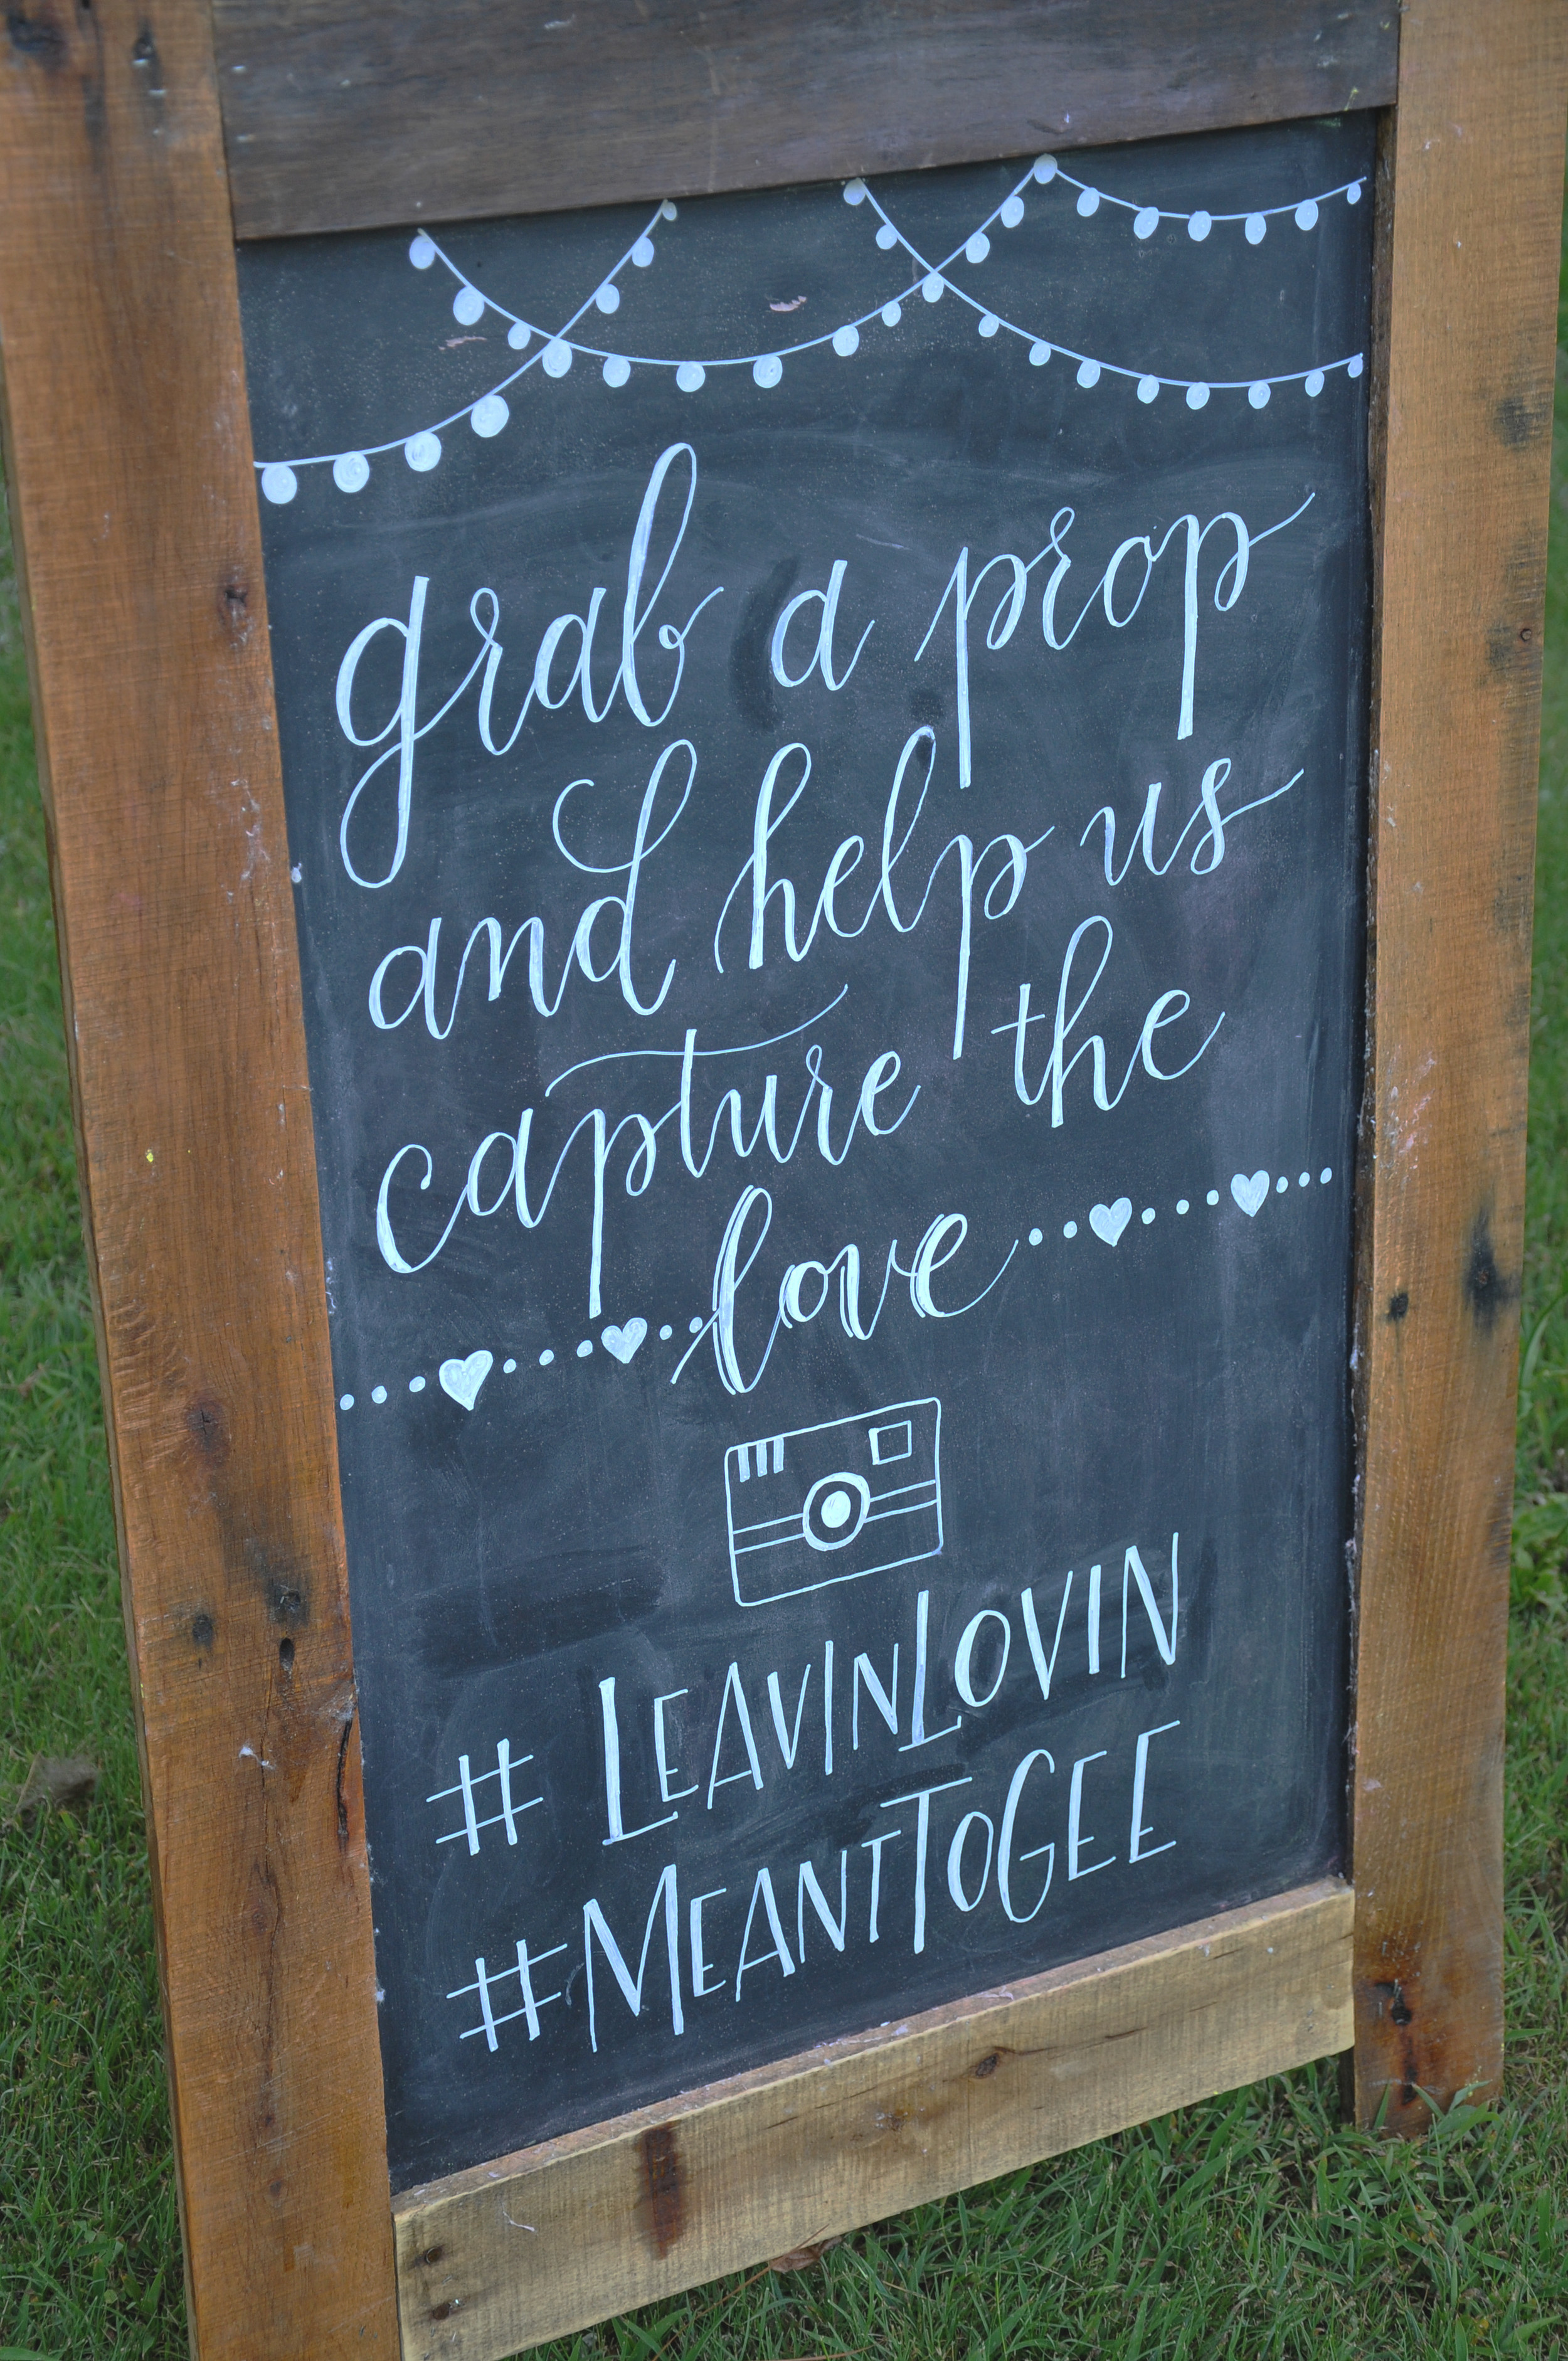 grab a prop
and help us
capture the
love
# LEAVINLOVIN
#MEANTTOGEE